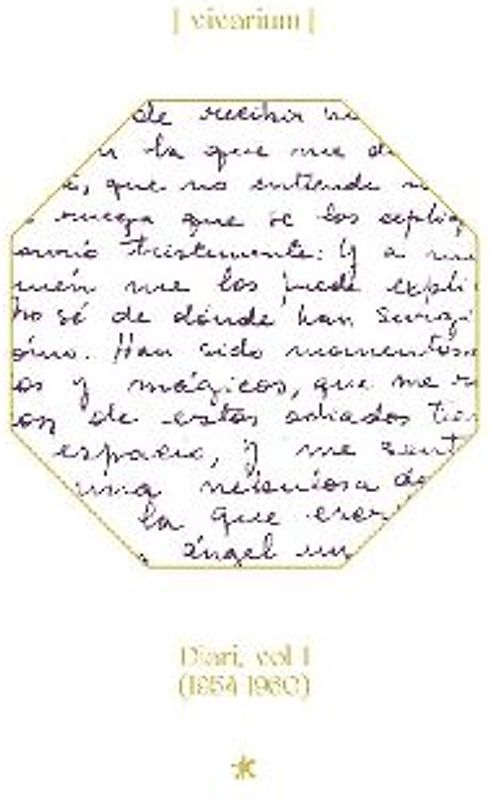 [ vivarium ]
de recibir
la que me
que no entiende
ruega que se los expliq
tristemente: Y a
me los puede expli
no sé de dónde han surgi
Han sido momentos
os y mágicos, que me
de estos odiados
espacio, y me sent
una misteriosa
la que
ángel un
Diari, vol I
(1954-1960)